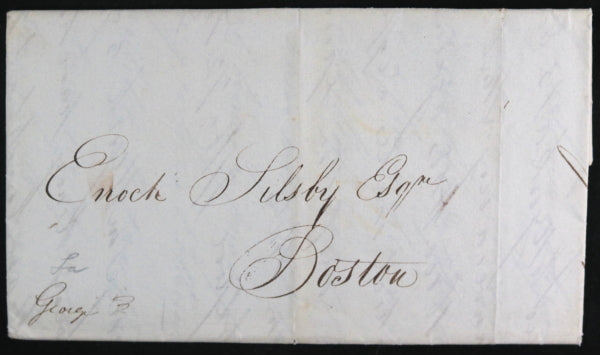 Enoch Silsby Esqr
Boston
George